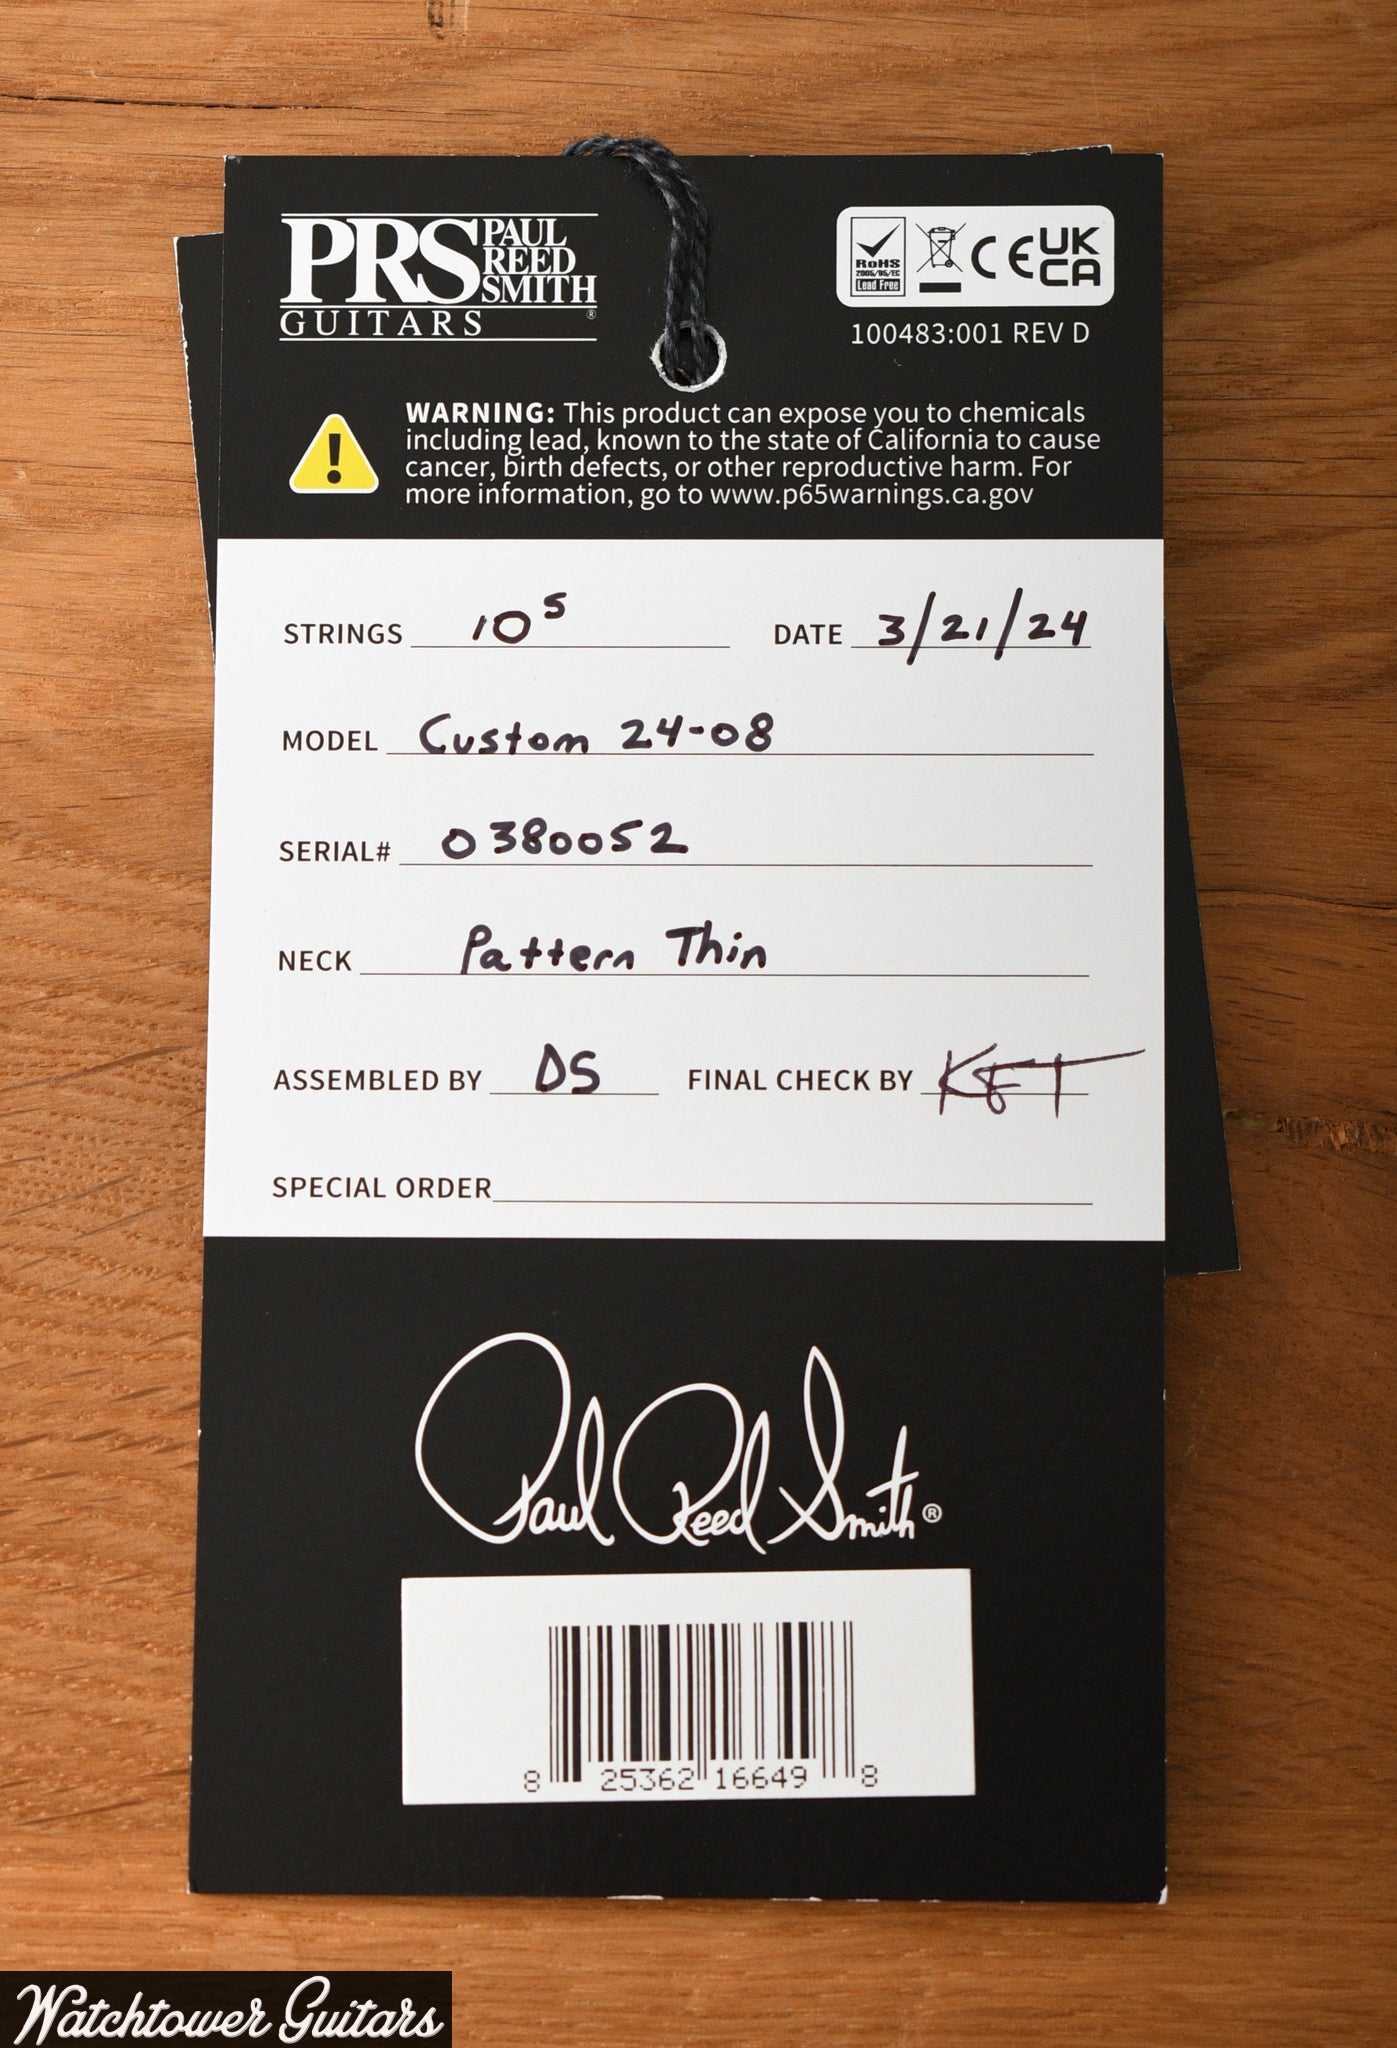 PRS PAUL REED SMITH
GUITARS ®
RoHS
2005/95/EC
Lead Free
CE UK CA
100483:001 REV D
WARNING: This product can expose you to chemicals
including lead, known to the state of California to cause
cancer, birth defects, or other reproductive harm. For
more information, go to www.p65warnings.ca.gov
STRINGS 10s DATE 3/21/24
MODEL Custom 24-08
SERIAL# 0380052
NECK Pattern Thin
ASSEMBLED BY DS FINAL CHECK BY
SPECIAL ORDER
Paul Reed Smith®
8 25362 16649 8
Watchtower Guitars